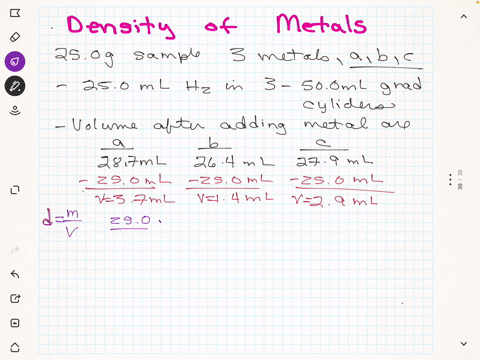 Density of Metals
25.0g sample 3 metals, a, b, c
- 25.0 mL H2 in 3 - 50.0mL grad
cyliders
- Volume after adding metal are
a b c
28.7mL 26.4 mL 27.9 mL
- 25.0 mL - 25.0 mL - 25.0 mL
V=3.7mL V=1.4 mL V=2.9 mL
d=m/V 25.0